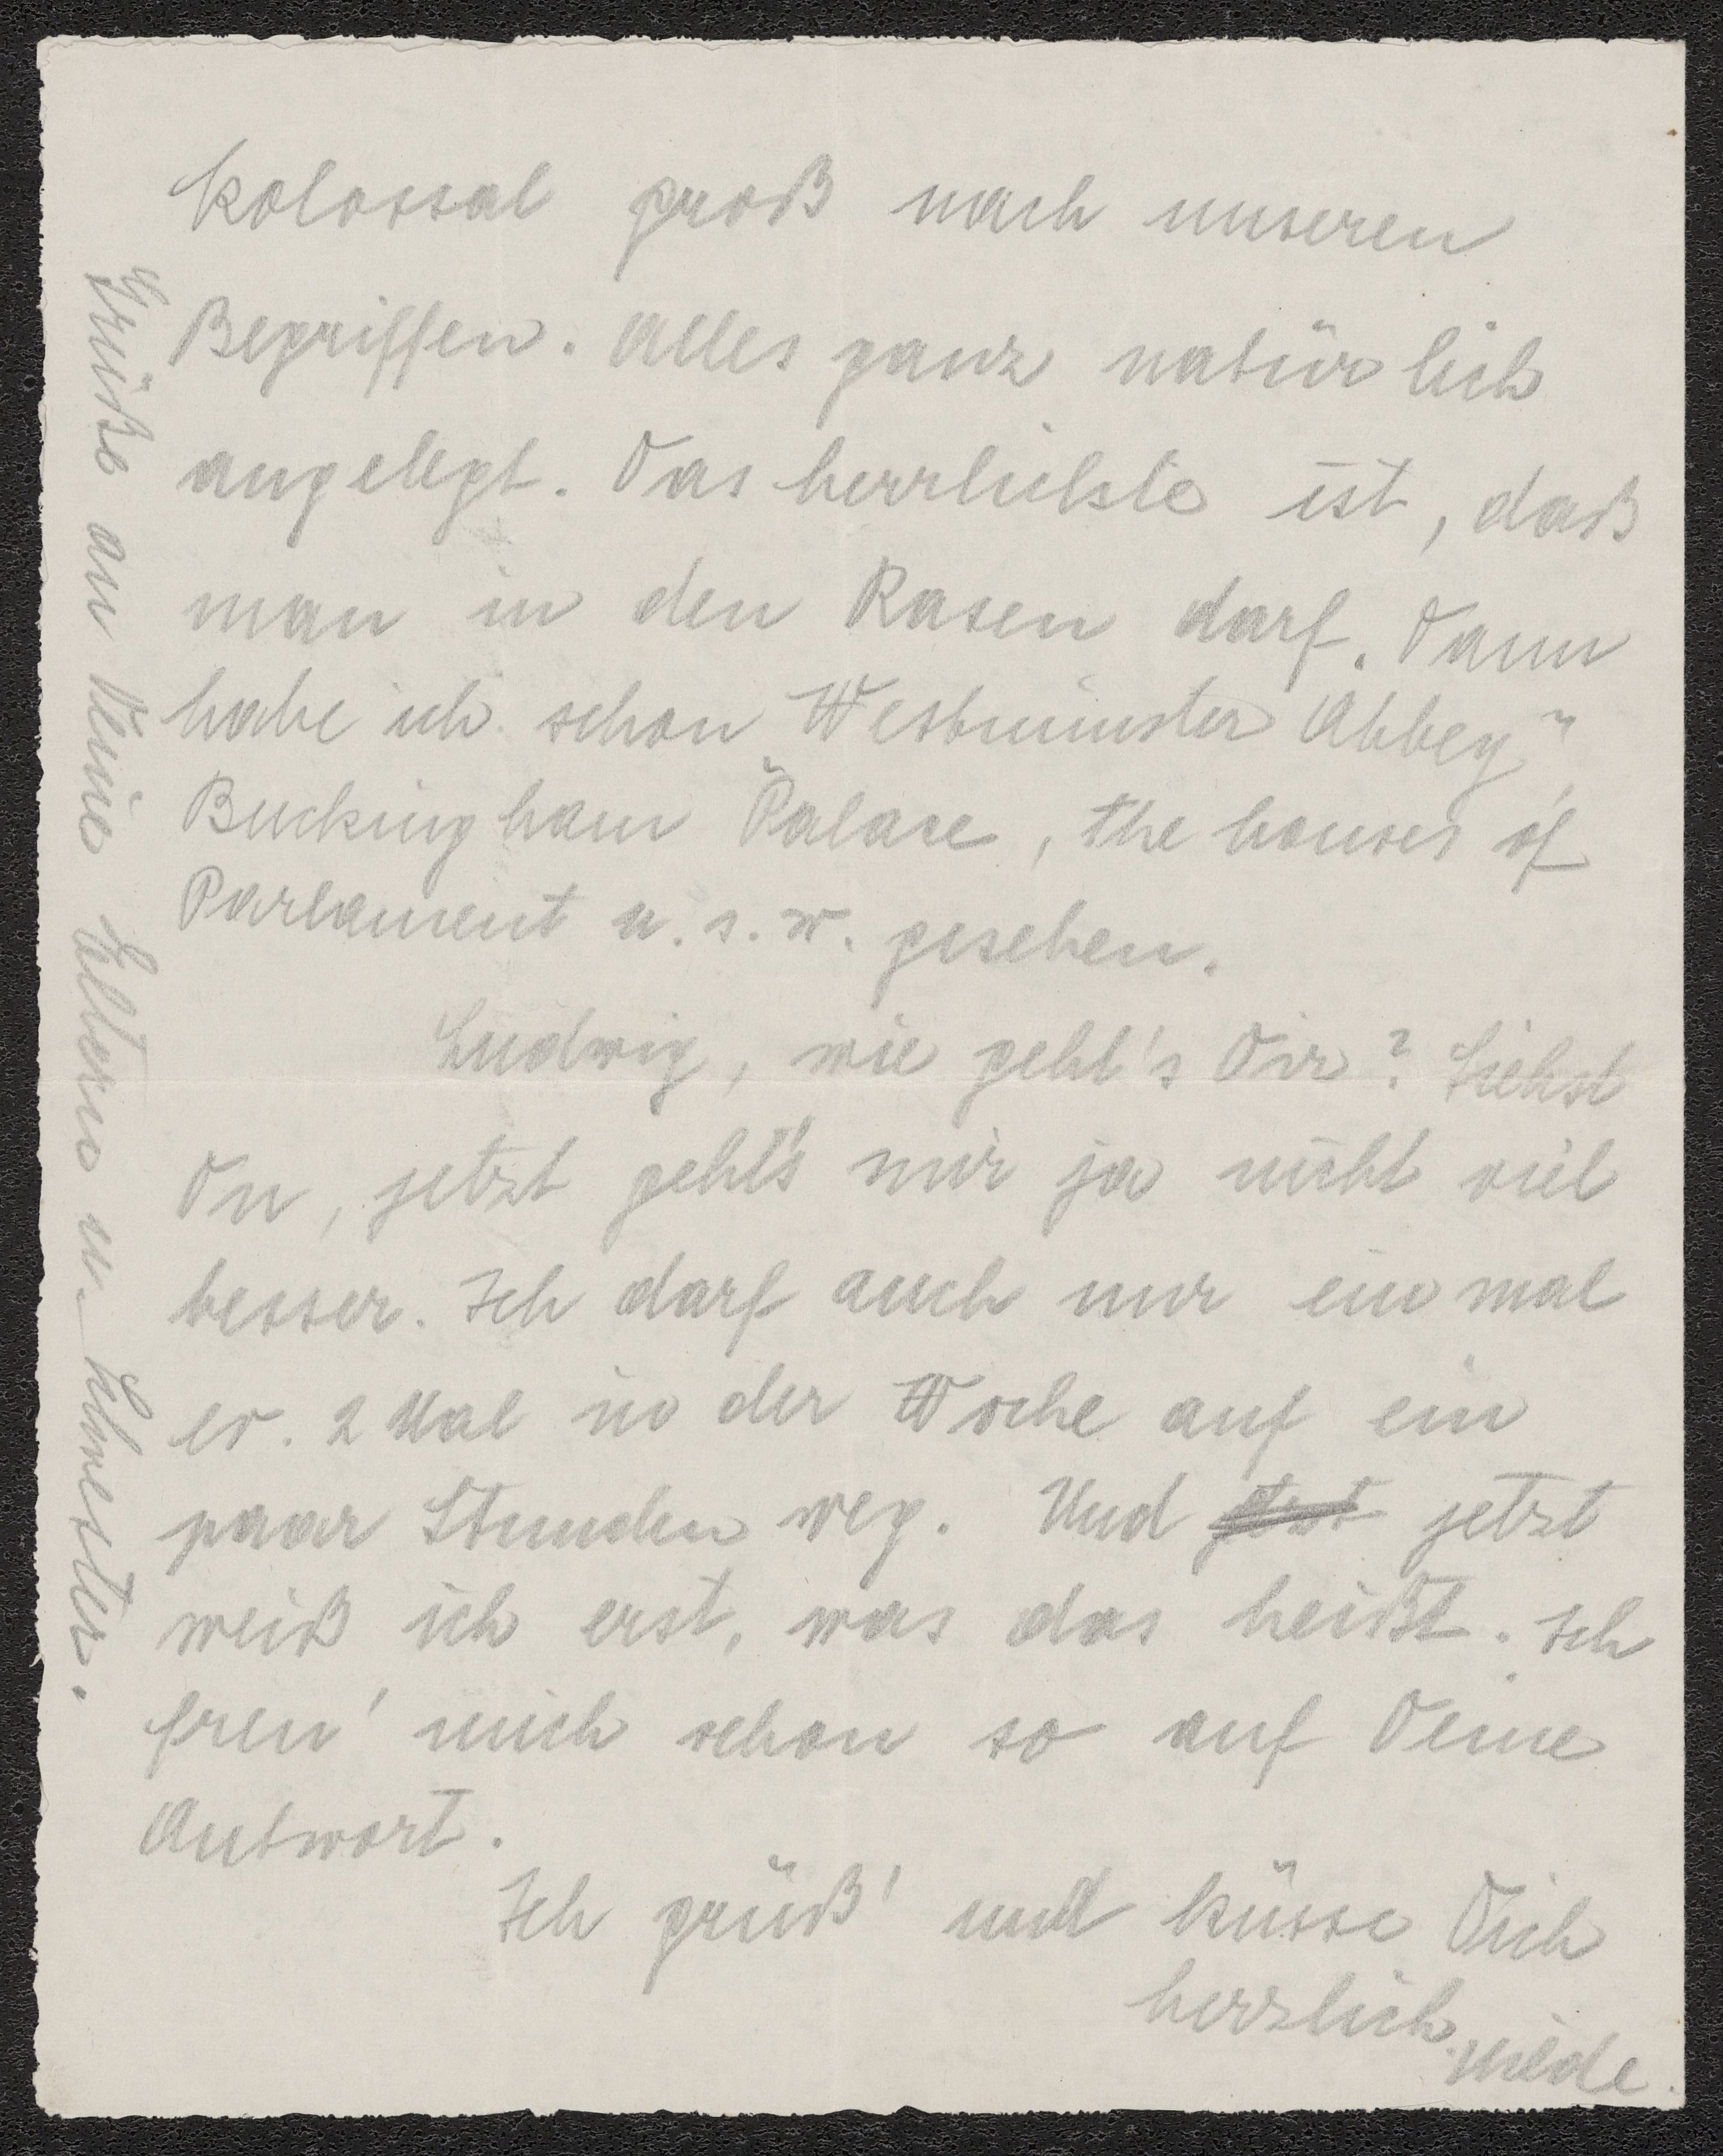 kolossal groß nach unseren
Begriffen. Alles ganz natürlich
angelegt. Das herrlichste ist, daß
man in den Rasen darf. Dann
habe ich schon „Westminster Abbey"
Buckingham Palace, the houses of
Parlament u. s. w. gesehen.
Ludwig, wie geht's Dir? Siehst
Du, jetzt geht's mir ja nicht viel
besser. Ich darf auch nur einmal
ev. 2 Mal in der Woche auf ein
paar Stunden weg. Und jetzt
weiß ich erst, was das heißt. Ich
freu' mich schon so auf Deine
Antwort.
Ich grüß' und küsse Dich
herzlich
Grüße an Deine Eltern u. Schwester.